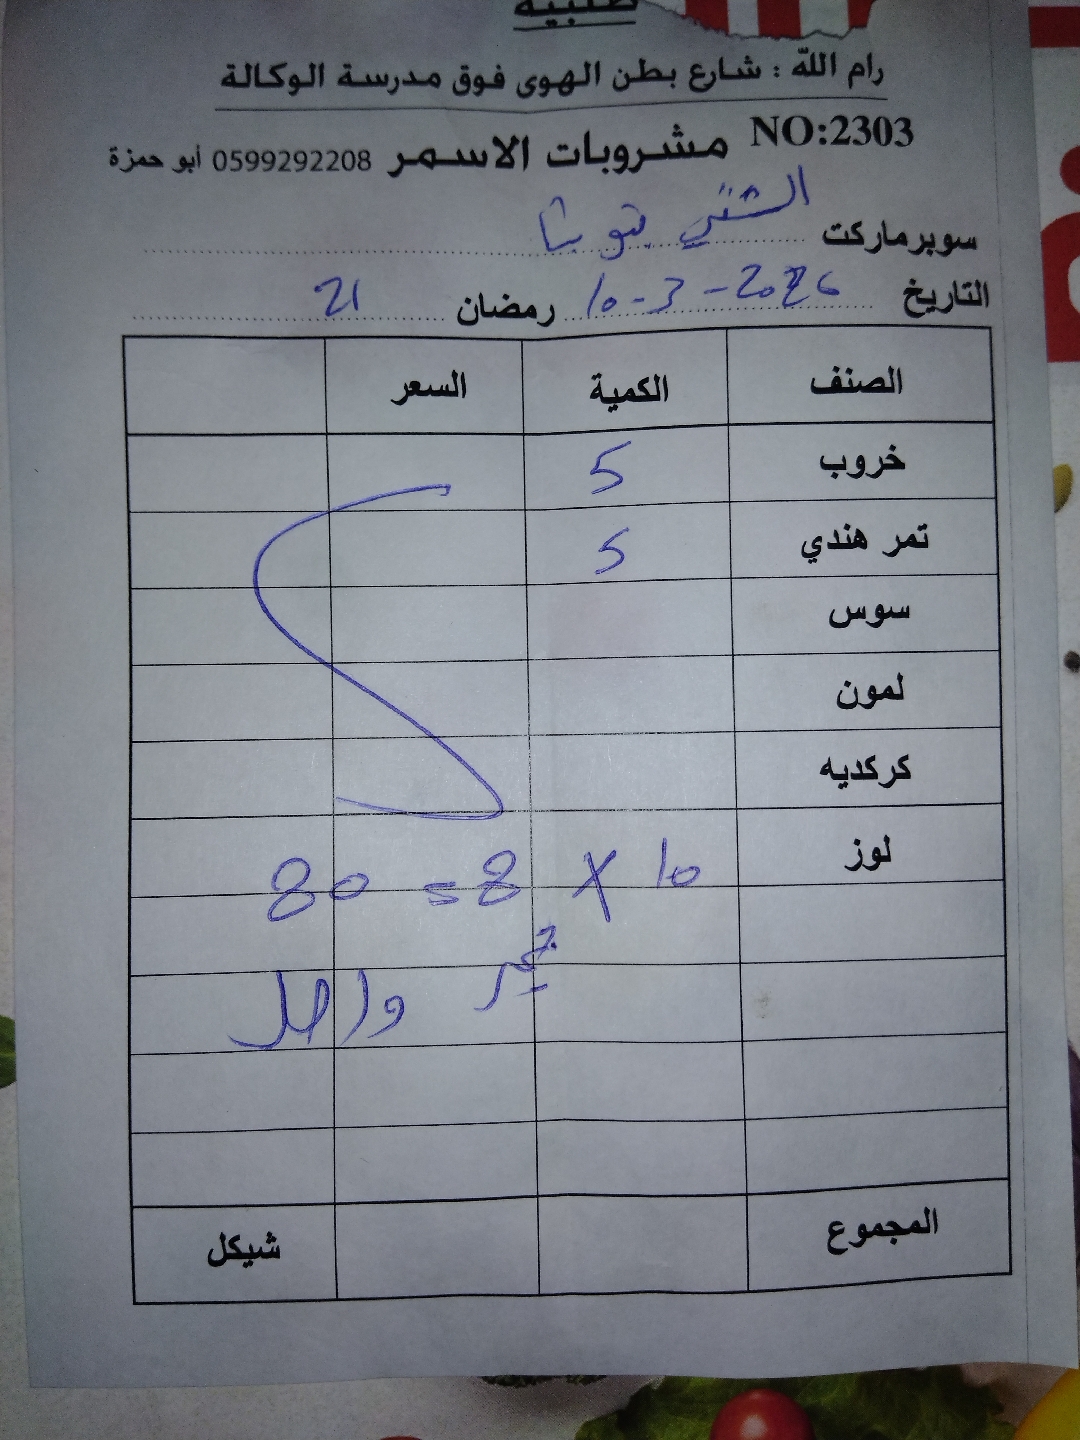 طلبية
رام الله : شارع بطن الهوى فوق مدرسة الوكالة
NO:2303 مشروبات الاسمر 0599292208 أبو حمزة
سوبرماركت
التاريخ 10-3-2026 رمضان 21
الصنف الكمية السعر
خروب 5
تمر هندي 5
سوس
لمون
كركديه
لوز
10 X 8 = 80
واصل
المجموع شيكل